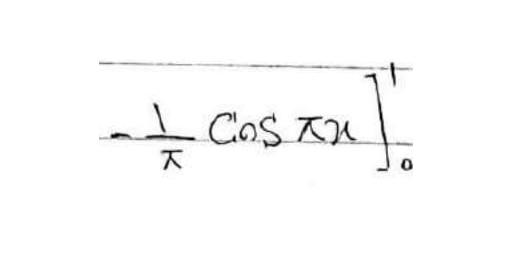 - 1/π Cos πx ]₀¹